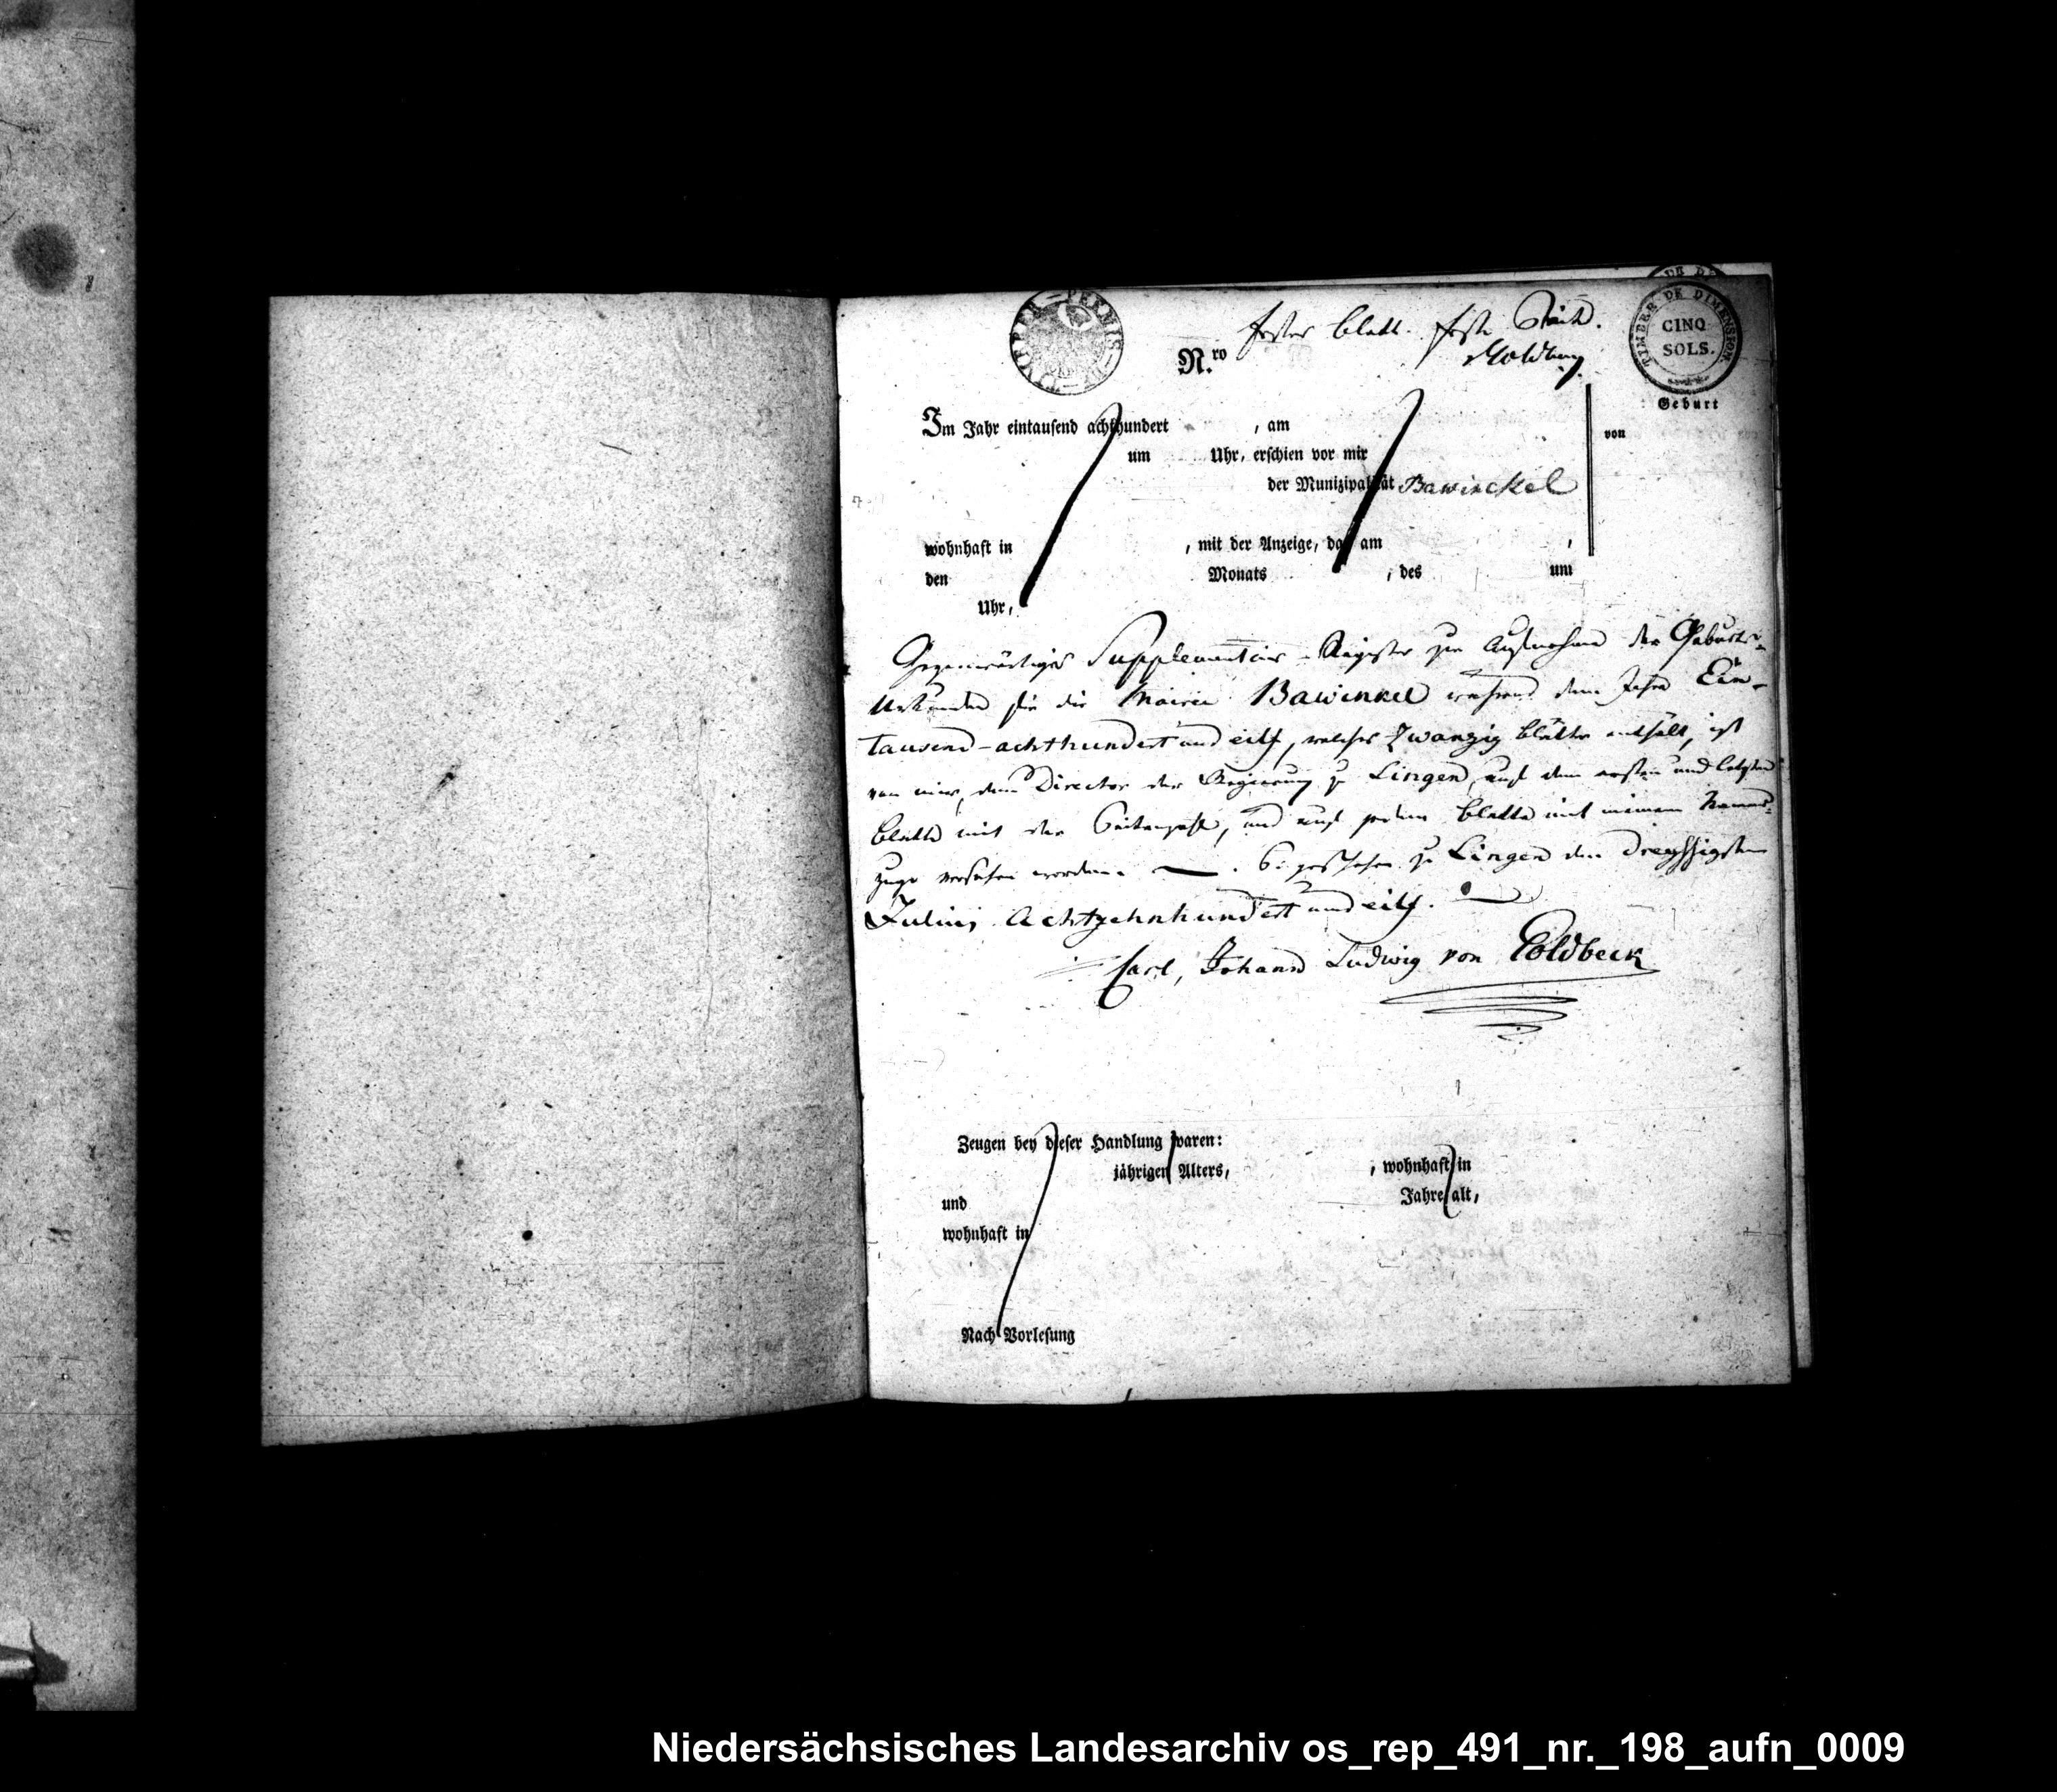 Erster Blatt. Erste Seite.
Goldbeck
N.ro
TIMBER DE DIMENSION.
CINQ
SOLS.
Geburt
von
Im Jahr eintausend achthundert , am
um Uhr, erschien vor mir
der Munizipalität Bawinckel
wohnhaft in , mit der Anzeige, daß am ,
den Monats , des um
Uhr,
Gegenwärtiges Supplementair-Register zur Aufnahme der Geburts-
Urkunden für die Mairie Bawinkel während dem Jahre Ein-
tausend-achthundert und eilf, welches Zwanzig Blätter enthält, ist
von mir, dem Director der Regierung zu Lingen, auf dem ersten und letzten
Blatte mit der Seitenzahl, und auf jedem Blatte mit meinem Namens-
zuge versehen worden. — . So geschehen zu Lingen den Dreyssigsten
Julius Achtzehnhundert und eilf.
Carl, Johann Ludwig von Goldbeck
Zeugen bey dieser Handlung waren:
jährigen Alters, , wohnhaft in
und Jahre alt,
wohnhaft in
Nach Vorlesung
Niedersächsisches Landesarchiv os_rep_491_nr._198_aufn_0009